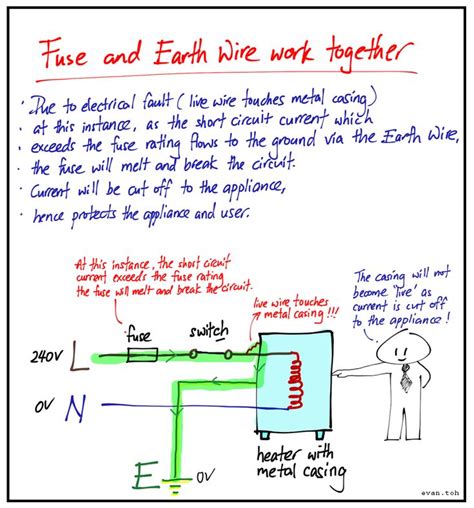 Fuse and Earth Wire work together
· Due to electrical fault (live wire touches metal casing)
· at this instance, as the short circuit current which
· exceeds the fuse rating flows to the ground via the Earth Wire,
· the fuse will melt and break the circuit.
· Current will be cut off to the appliance,
· hence protects the appliance and user.
At this instance, the short circuit
current exceeds the fuse rating
the fuse will melt and break the circuit.
The casing will not
become 'live' as
current is cut off
to the appliance!
live wire touches
metal casing!!!
fuse
switch
240V L
0V N
E 0V
heater with
metal casing
evan.toh